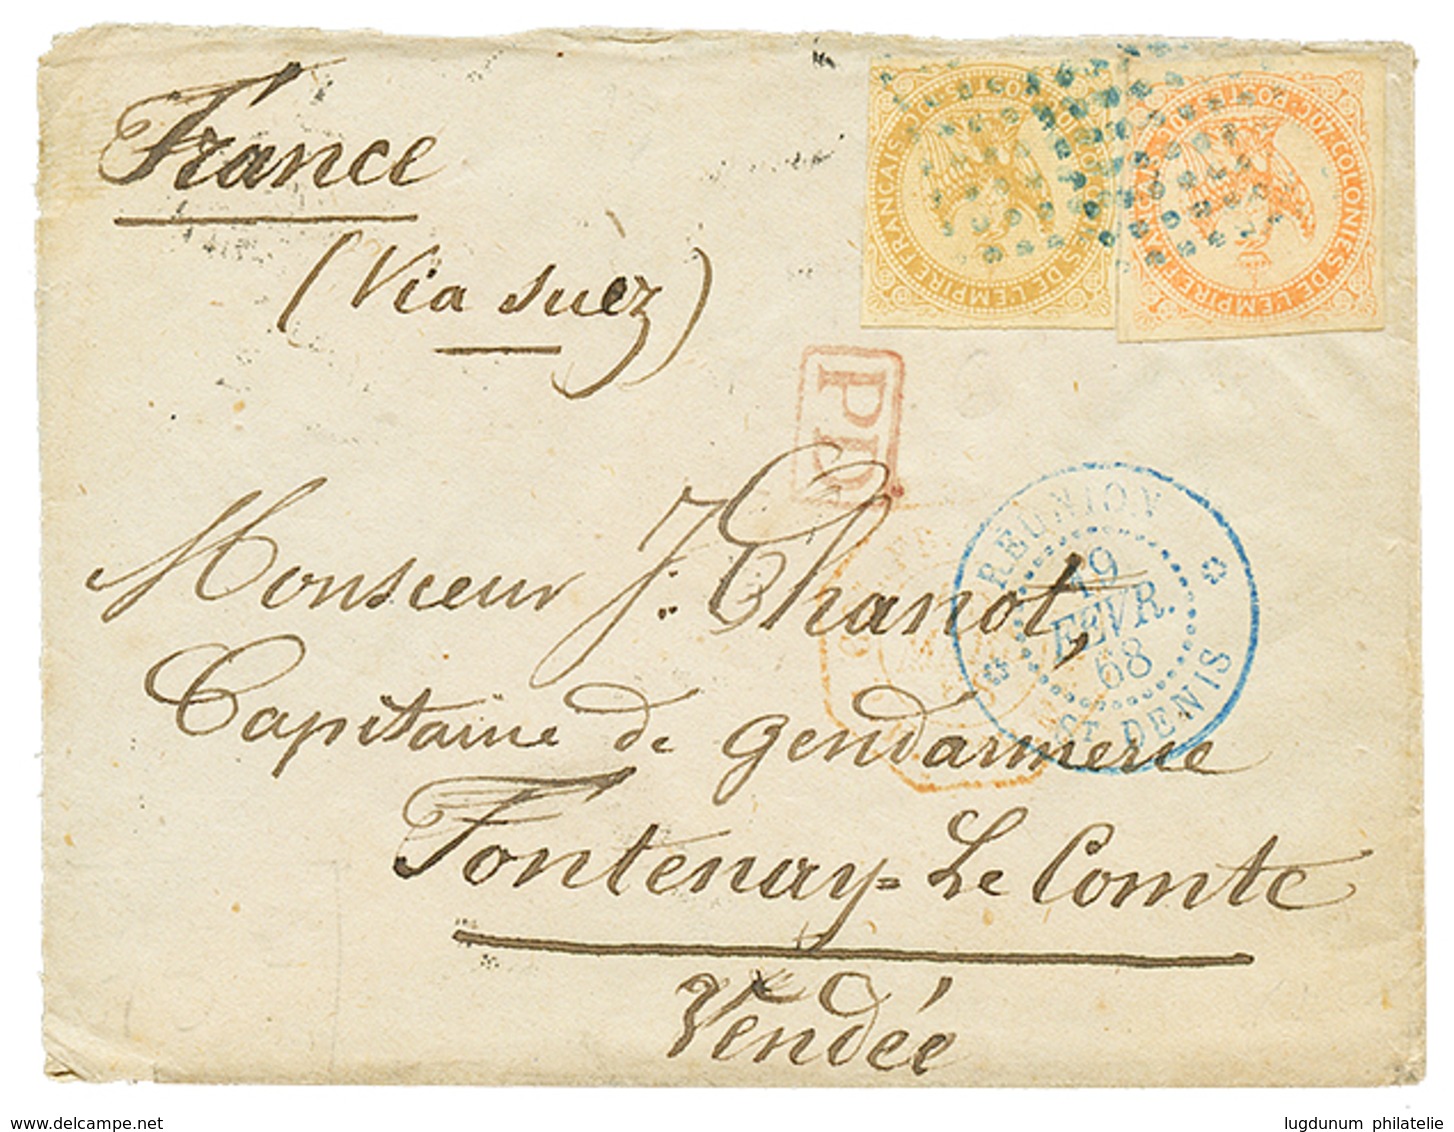 France
(Via Suez)
COLONIES DE L'EMPIRE FRANÇAIS
COLONIES DE L'EMPIRE
40C
PD
RÉUNION
19
FEVR.
68
ST DENIS
Monsieur J. Chanot,
Capitaine de gendarmerie
Fontenay-Le Comte
Vendée
www.delcampe.net
lugdunum philatelie